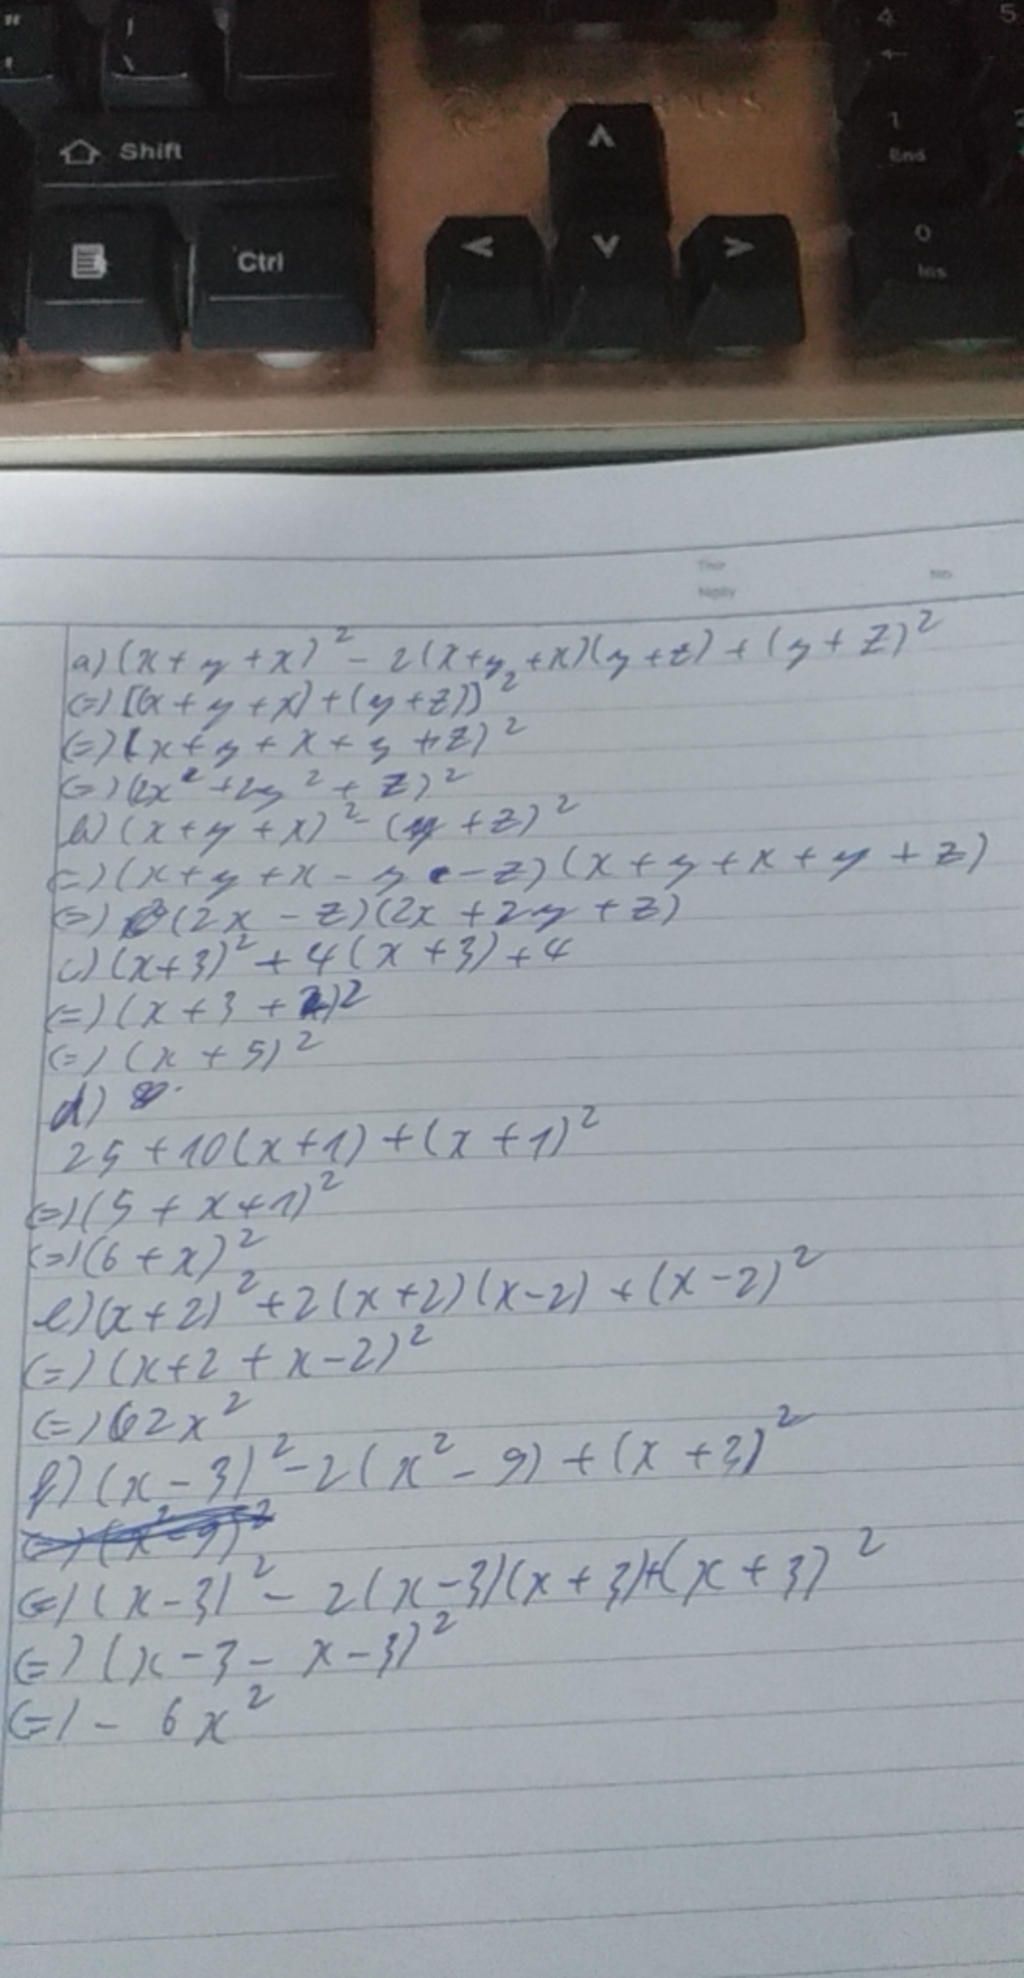 4 5
←
1 2
End
⇧ Shift
^
0
Ins
Ctrl
< v >
Thứ
Ngày No.
a) (x+y+x)² - 2(x+y+x)(y+z) + (y+z)²
(=) [(x+y+x)+(y+z)]²
(=) (x+y+x+y+z)²
(=) (2x²+2y²+z)²
b) (x+y+x)² - (y+z)²
(=) (x+y+x-y-z)(x+y+x+y+z)
(=) (2x-z)(2x+2y+z)
c) (x+3)² + 4(x+3) + 4
(=) (x+3+2)²
(=) (x+5)²
d)
25+10(x+1)+(x+1)²
(=) (5+x+1)²
(=) (6+x)²
e) (x+2)² + 2(x+2)(x-2) + (x-2)²
(=) (x+2+x-2)²
(=) 2x²
f) (x-3)² - 2(x²-9) + (x+3)²
(=) (x²-9)²
(=) (x-3)² - 2(x-3)(x+3)+(x+3)²
(=) (x-3-x-3)²
(=) - 6x²